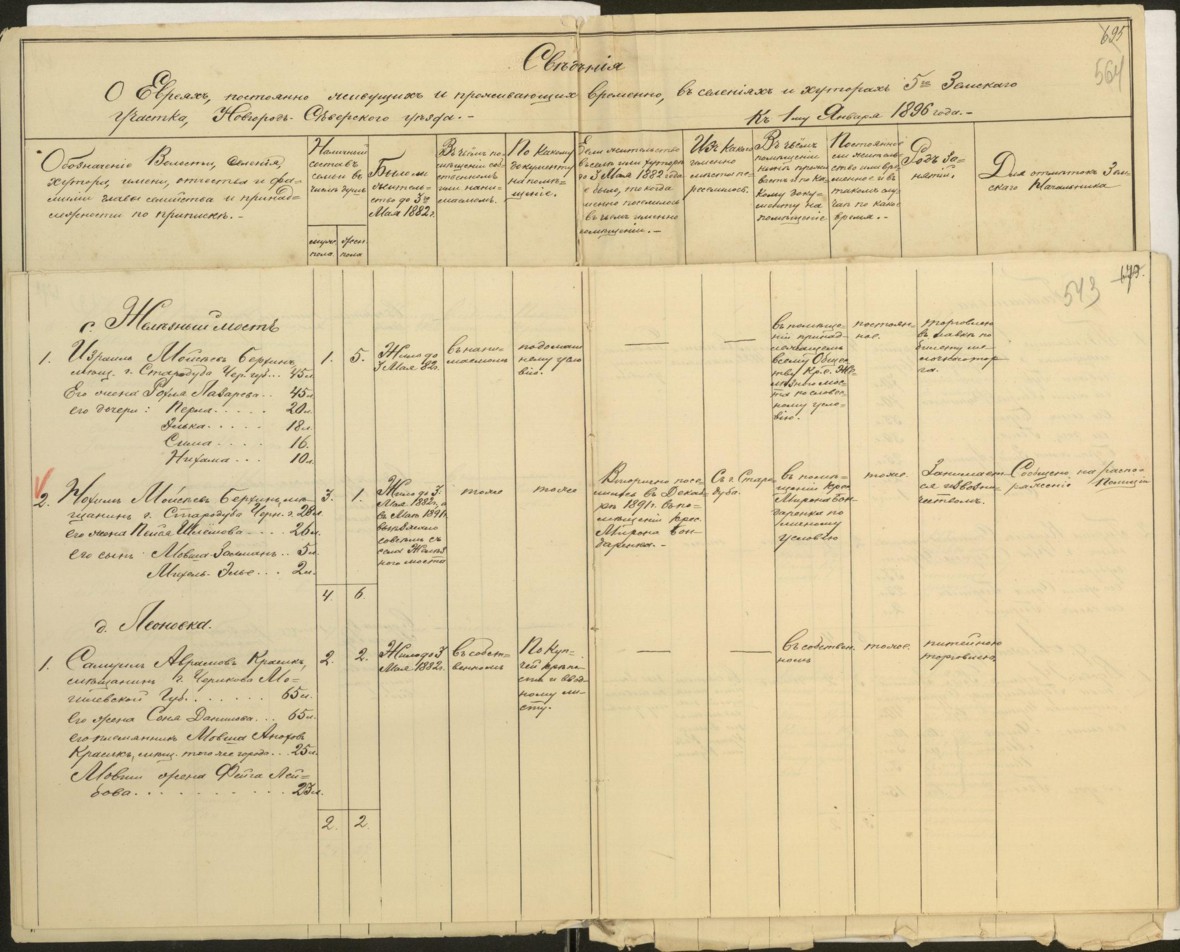 695
564
Свѣдѣнія
О Евреяхъ, постоянно живущихъ и проживающихъ временно, въ селеніяхъ и хуторахъ 5го Земскаго
Участка, Новгородъ-Сѣверского уѣзда.- Къ 1му Января 1896 года.-
Обозначеніе Волости, селенія,
хутора, имени, отчества и фа-
миліи главы семейства и принад-
лежности по припискѣ.-
Наличный
составъ
семьи
числѣ душъ
мужс.
пола
женс.
пола
Было ли
жительс-
тво до 3го
Мая 1882 г.
Въ чьемъ по-
мѣщеніи соб-
ственномъ
или нани-
маемомъ.
По какому
документу
на помѣ-
щеніе.
Если жительство
въ селѣ или хуторѣ
до 3 Мая 1882 года
не было, то когда
именно поселился
въ чьемъ именно
помѣщеніи.-
Изъ какого
именно
мѣста пе-
реселился.
Въ чьемъ
помѣщеніи
прожи-
ваетъ и по ка-
кому доку-
менту на
помѣщеніе
Постоянное
ли житель-
ство или вре-
менное и въ
такомъ слу-
чаѣ по какое
время.-
Родъ за-
нятій.
Для отмѣтокъ Зем-
скаго Начальника
543
с. Желѣзный мостъ
1. Израиль Мойсѣевъ Берхинъ
мѣщ. г. Стародуба Чер. губ... 45 л.
Его жена Рохля Лазарева.. 45 л.
его дочери: Перла..... 20 л.
Элька..... 18 л.
Сима.... 16.
Нихама... 10 л.
1. 5.
Жилъ до
3 Мая 82 г.
въ нани-
маемомъ
по домаш-
нему усло-
вію.
въ помѣще-
ніи принад-
лежащемъ
всему Обще-
ству Кр. с. Же-
лѣзного мос-
та по словес-
ному усло-
вію.
постоян-
ное.
торговлею
въ лавкѣ по
2. Нохимъ Мойсѣевъ Берхинъ, мѣ-
щанинъ г. Стародуба Черн. г. 28 л.
его жена Пейся Шлёмова... 26 л.
его сынъ: Мовша Залманъ.. 5 л.
Михель Элье... 2 л.
3. 1.
Жилъ до 3
Мая 1882 г. а
въ Маѣ 1891 г.
выселенъ
совсѣмъ съ
села Желѣз-
ного моста
тоже
тоже
Вторично посе-
лился въ Декаб-
рѣ 1891 г. въ по-
мѣщеніи кре.
Мирона Бон-
даренка.-
Съ г. Старо-
дуба.
въ помѣ-
щеніи крес.
Мирона Бон-
даренка по
условію
тоже.
Занимает-
ся извоз-
чествомъ.
Сообщено на распо-
ряженіе Полиціи
4. 6.
д. Леоновка.
1. Самуилъ Аврамовъ Крашкъ,
мѣщанинъ г. Черикова Мо-
гилевской Губ....... 65 л.
его жена Соня Данилова... 65 л.
его племянникъ Мовша Аноховъ
Крашкъ, мѣщ. того же города.. 25 л.
Мовши жена Фейга Лей-
бова............ 23 л.
2. 2.
Жилъ до 3
Мая 1882 г.
въ собст-
венномъ
По Куп-
чей крѣпо-
сти и ввод-
ному ли-
сту.
въ собствен.
номъ
тоже.
питейною
торговлею.
2. 2.